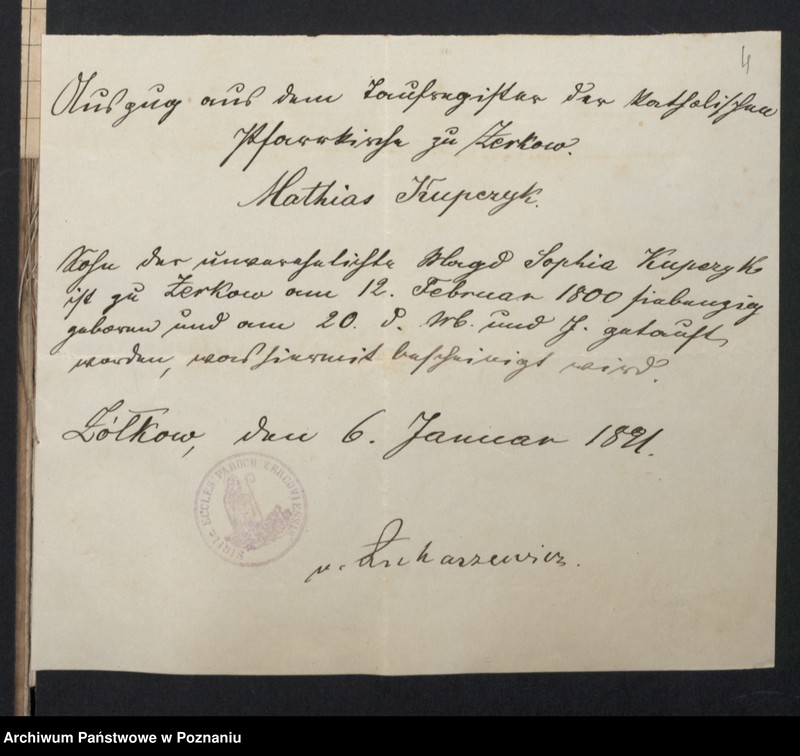 4
Auszug aus dem Taufregister der katholischen
Pfarrkirche zu Zerkow.
Mathias Kupczyk.
Sohn der unverehelichte Magd Sophia Kupczyk
ist zu Zerkow am 12. Februar 1800 siebenzig
geboren und am 20. d. M. und J. getauft
worden, was hiermit bescheinigt wird.
Żółkow, den 6. Januar 1891.
SIGILL. ECCLES. PAROCH. ZERCOVIENSIS
v. Łukaszewicz.
Archiwum Państwowe w Poznaniu